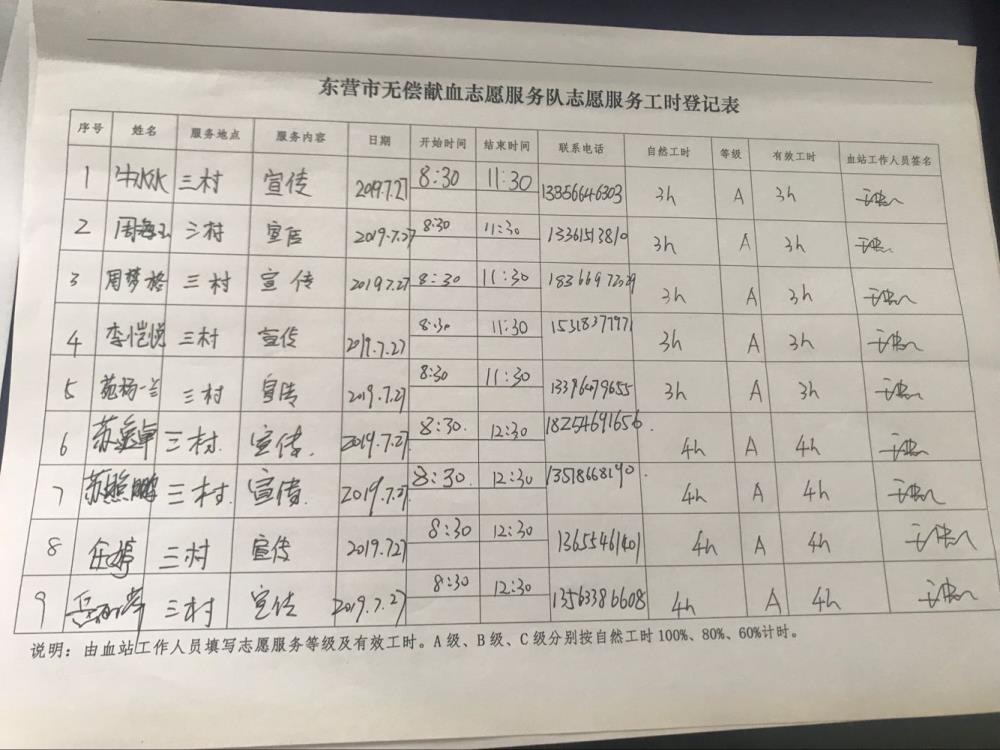 东营市无偿献血志愿服务队志愿服务工时登记表
序号 姓名 服务地点 服务内容 日期 开始时间 结束时间 联系电话 自然工时 等级 有效工时 血站工作人员签名
1 牛冰冰 三村 宣传 2019.7.27 8:30 11:30 13856646303 3h A 3h
2 周海玉 三村 宣传 2019.7.27 8:30 11:30 13361513810 3h A 3h
3 周梦格 三村 宣传 2019.7.27 8:30 11:30 3h A 3h
4 李恺悦 三村 宣传 2019.7.27 8:30 11:30 15318377971 3h A 3h
5 苑杨一兰 三村 宣传 2019.7.27 8:30 11:30 13396079655 3h A 3h
6 三村. 宣传. 2019.7.27 8:30. 12:30 18254691656. 4h A 4h
7 苏照鹏 三村. 宣传. 2019.7.27 8:30. 12:30 13518668190. 4h A 4h
8 任婷 三村 宣传 2019.7.27 8:30 12:30 13655461401 4h A 4h
9 三村 宣传 2019.7.27 8:30 12:30 13563386608 4h A 4h
说明：由血站工作人员填写志愿服务等级及有效工时。A级、B级、C级分别按自然工时100%、80%、60%计时。